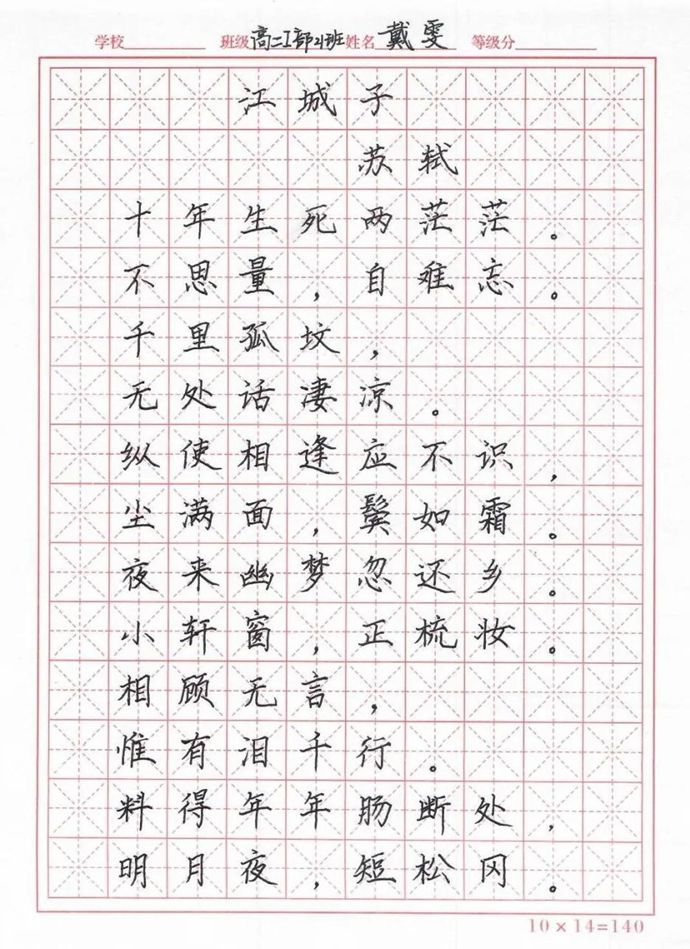 学校 班级 高二I部21班 姓名 戴雯 等级分
江城子
苏轼
十年生死两茫茫。
不思量,自难忘。
千里孤坟,
无处话凄凉。
纵使相逢应不识,
尘满面,鬓如霜。
夜来幽梦忽还乡。
小轩窗,正梳妆。
相顾无言,
惟有泪千行。
料得年年肠断处,
明月夜,短松冈。
10×14=140